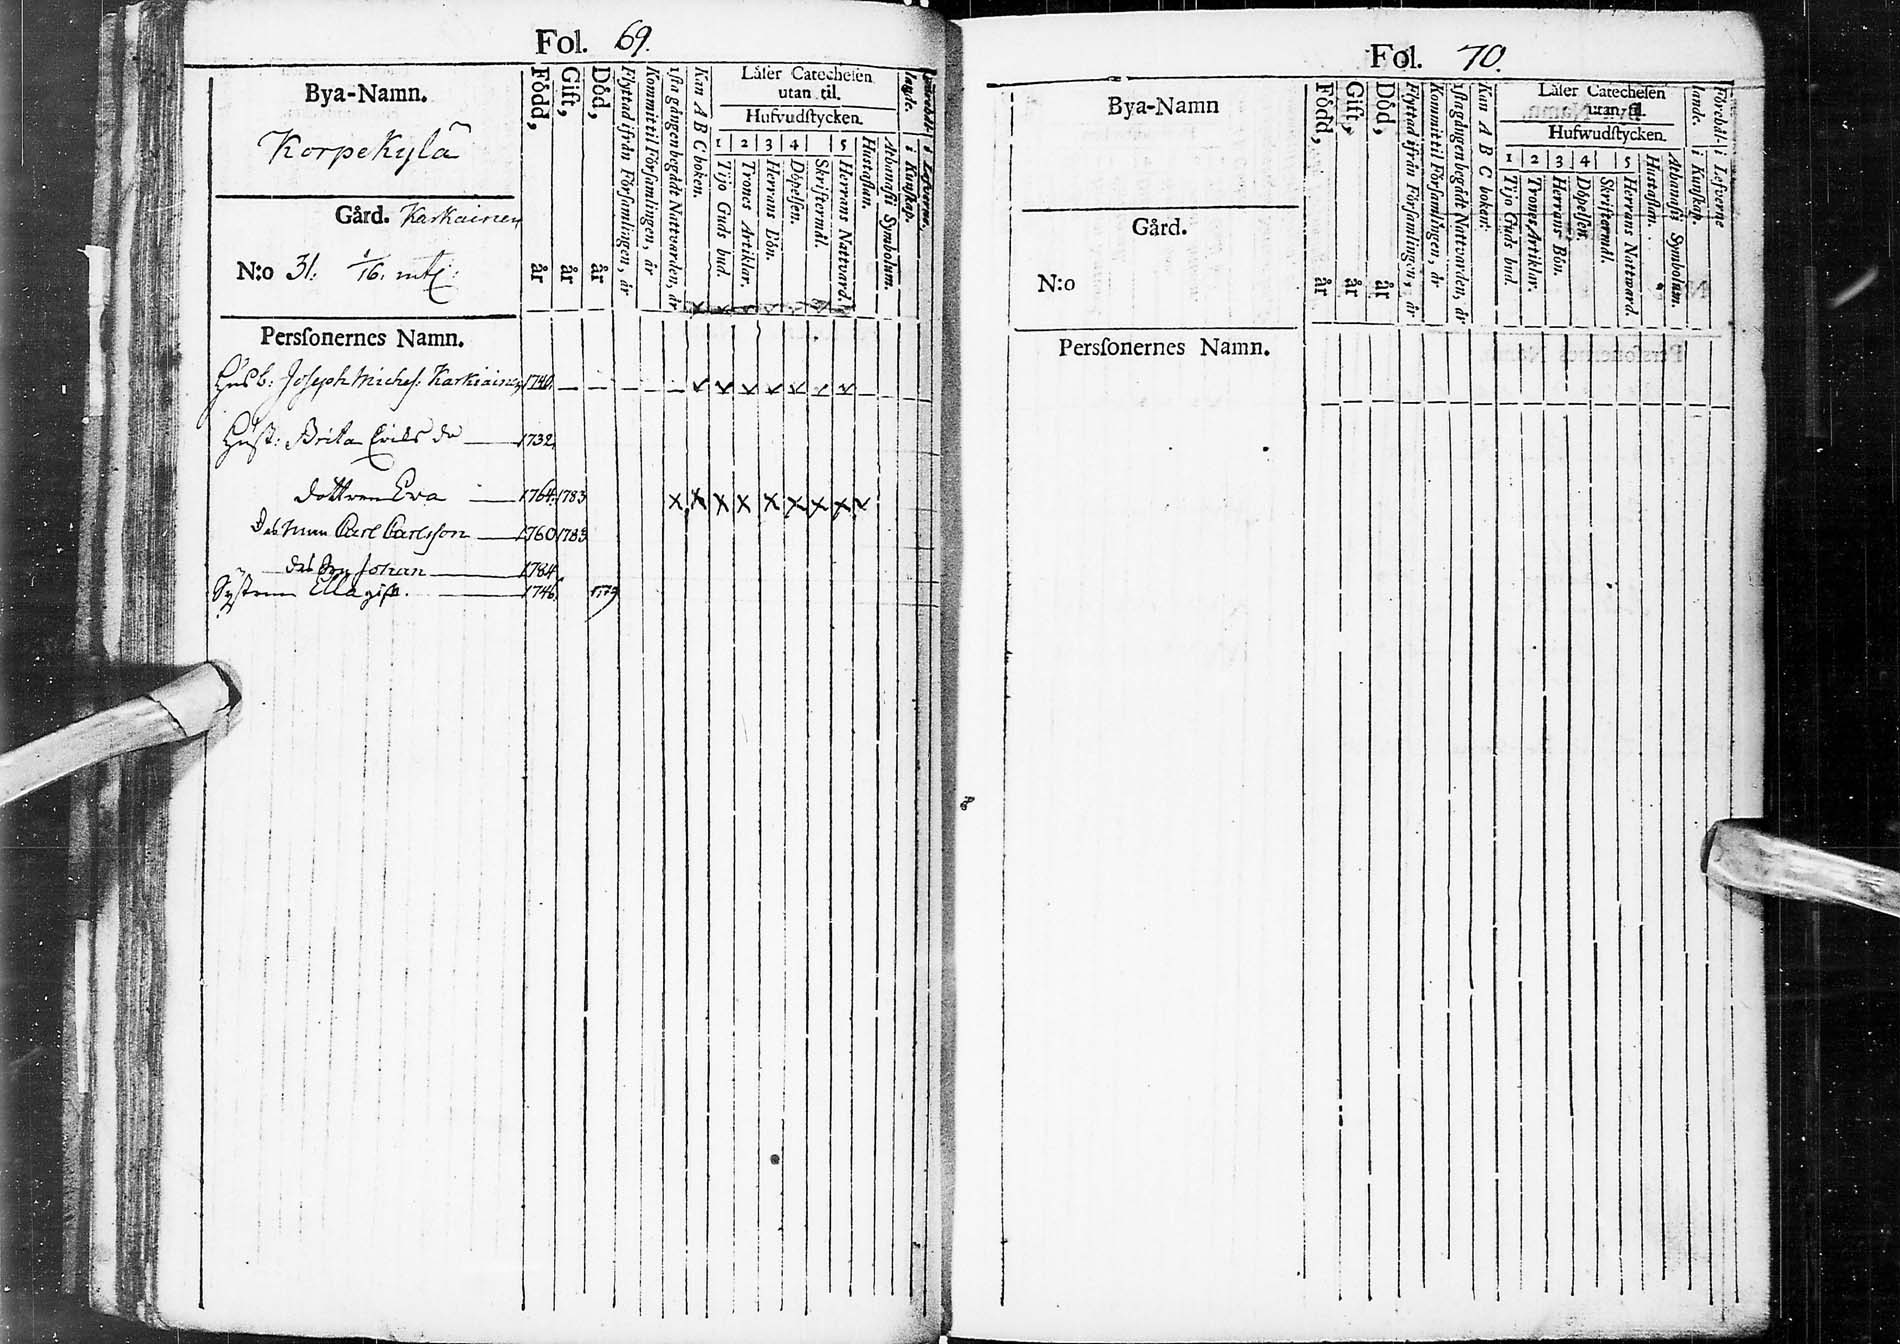 Fol. 69.
Bya-Namn.
Korpekylä
Gård. Karkainen
N:o 31. 1/16. mtl:
Född, år
Gift, år
Död, år
Flyttad ifrån Församlingen, år
Kommit til Församlingen, år
1sta gången begådt Nattvarden, år
Kan A B C boken.
Läser Catechesen
utan til.
Hufvudstycken.
1 2 3 4 5
Tijo Guds bud.
Trones Artiklar.
Herrans Bön.
Döpelsen.
Skriftermål.
Herrans Nattvard.
Hustaflan.
Athanasii Symbolum.
i Kunskap.
i Lefverne.
Personernes Namn.
Husb: Joseph Michels: Karkiainen 1740.
Hust: Brita Erils dr 1732
dottren Eva 1764. 1783
Des man Carl Carlsson 1760 1783
des Son Johan 1784
Systren Ella gift. 1746. 1779
Fol. 70.
Bya-Namn
Gård.
N:o
Född, år
Gift, år
Död, år
Flyttad ifrån Församlingen, år
Kommit til Församlingen, år
1sta gången begådt Nattvarden, år
Kan A B C boken.
Läser Catechesen
utan til.
Hufwudstycken.
1 2 3 4 5
Tijo Guds bud.
Trones Artiklar.
Herrans Bön.
Döpelsen.
Skriftermål.
Herrans Nattward.
Hustaflan.
Athanasii Symbolum.
i Kunskap.
i Lefverne
Personernes Namn.